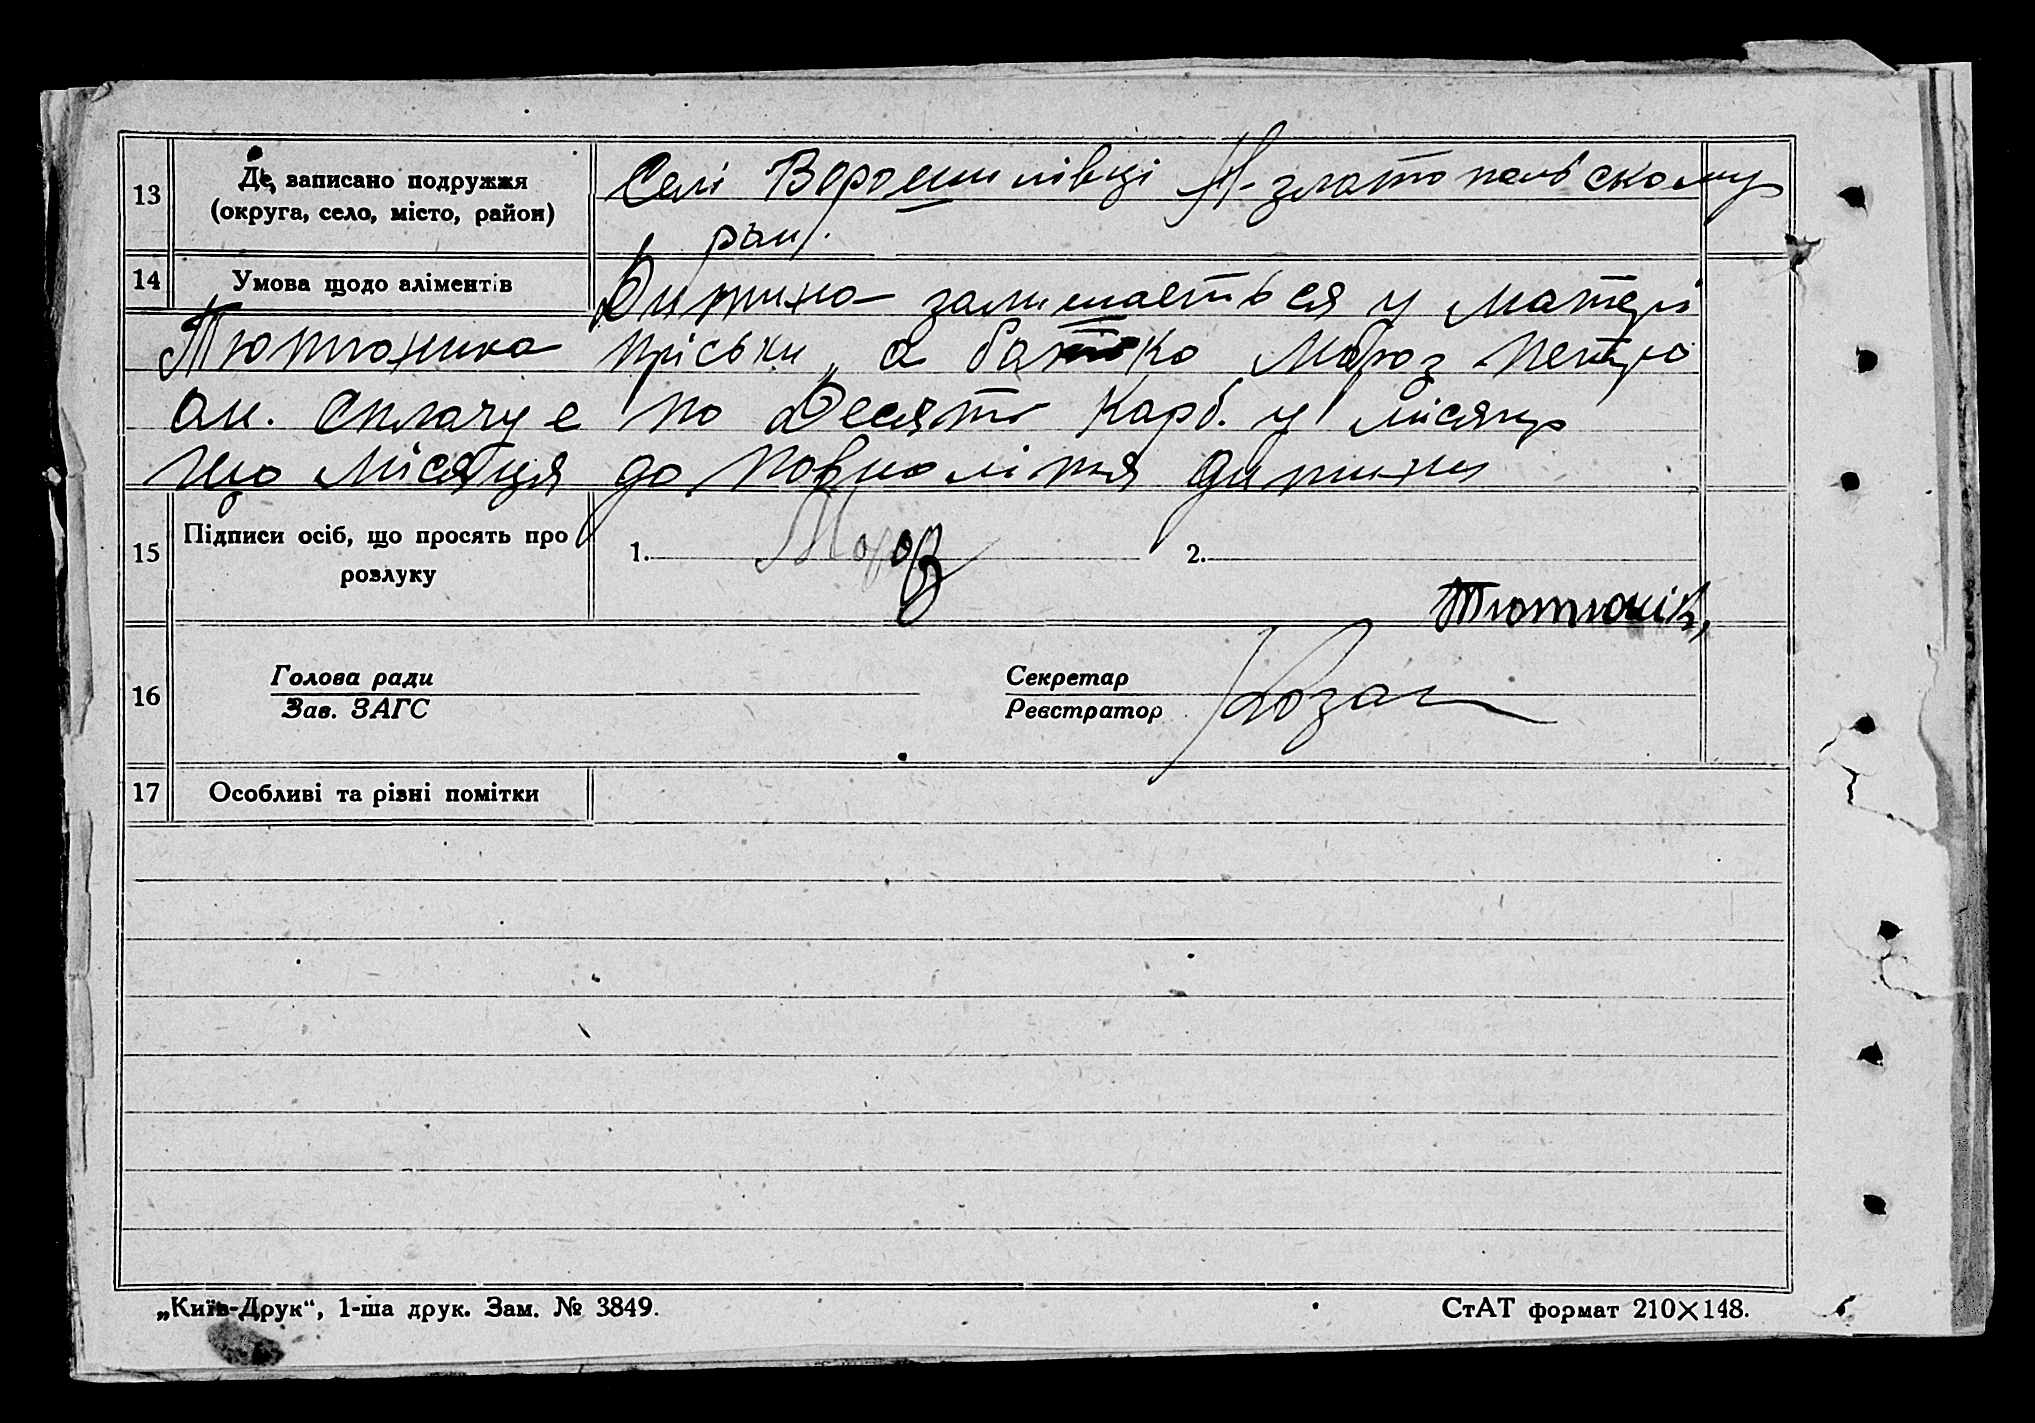 13 Де записано подружжя
(округа, село, місто, район)
Селі Ворошилівці Н-златопольскому
рай.
14 Умова щодо аліментів
Дитина залишається у матері
Тютюника Пріськи, а батько Мороз Петро
Ан. сплачує по Десять Карб. у місяць
що місяця до повноліття дитини
15 Підписи осіб, що просять про
розлуку
1. Мороз 2.
Тютюнік
16 Голова ради
Зав. ЗАГС
Секретар
Реєстратор
Козак
17 Особливі та різні помітки
„Київ-Друк“, 1-ша друк. Зам. № 3849.
СтАТ формат 210×148.